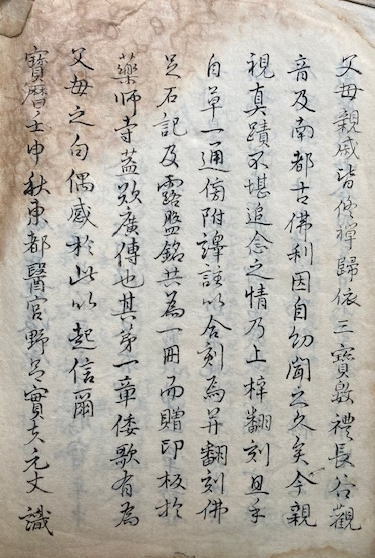 父母親戚皆修禪歸依三寶數禮長谷觀
音及南都古佛刹因自幼聞之久矣今親
視真蹟不堪追念之情乃上梓翻刻且手
自草一通傍附譯註以合刻焉并翻刻佛
足石記及露盤銘共為一冊而贈印板於
藥師寺蓋欲廣傳也其第一章倭歌有為
父母之句偶感於此以起信爾
寶曆壬申秋東都醫官野呂實夫元丈識